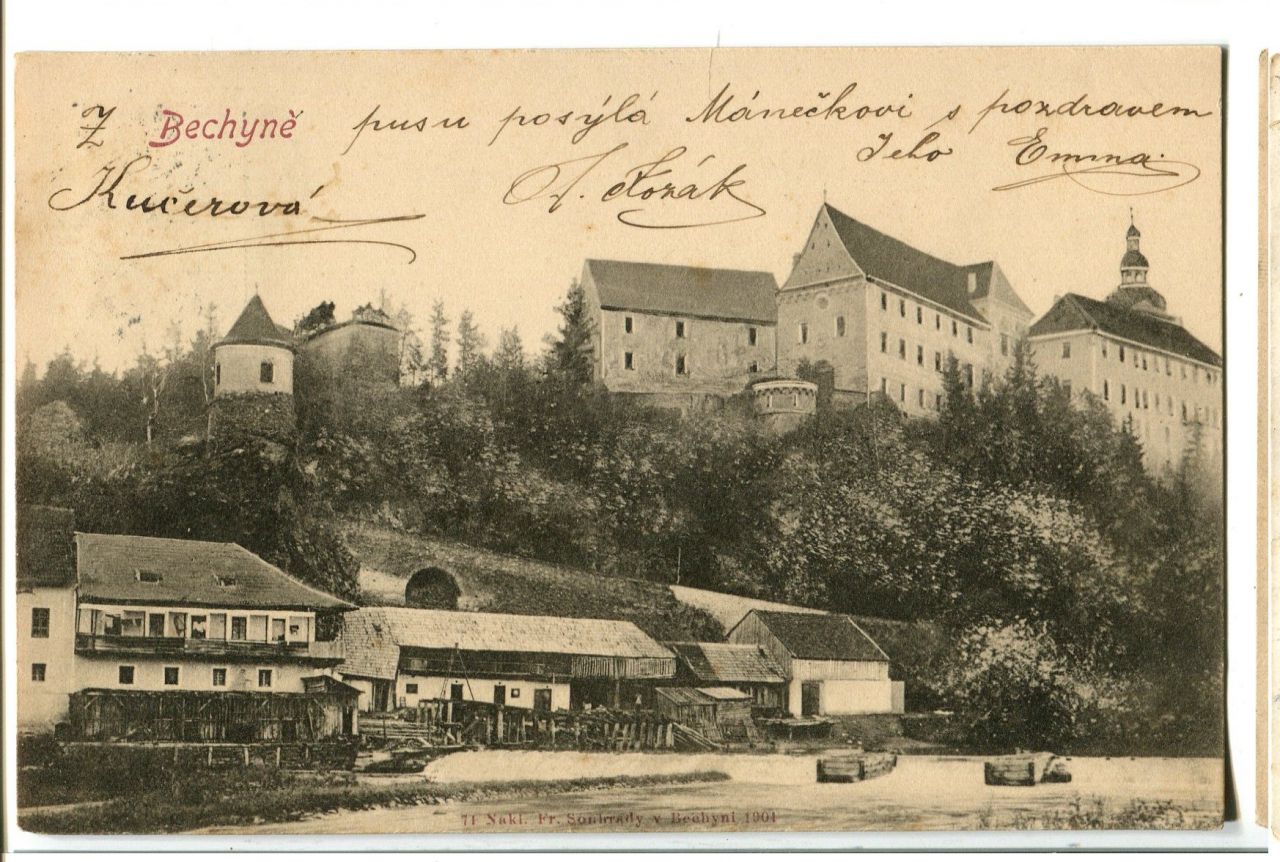 Z Bechyně pusu posýlá Mánečkovi s pozdravem
Jeho Emma
Kučerová
71 Nakl. Fr. Souhrady v Bechyni 1904